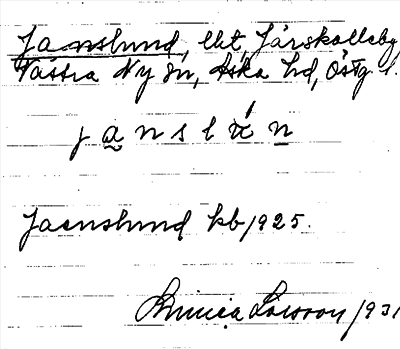 Janslund, lht, Järskalleby
Västra Ny sn, Aska hd, Östg l.
j a n s l ú n
Jaenslund kb 1925.
Linnéa Larsson 1931